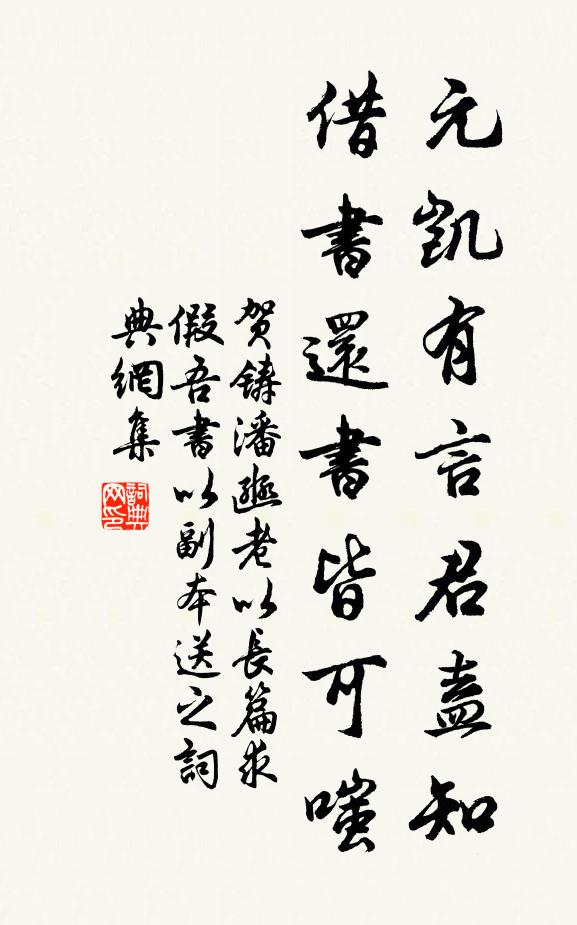 元凱有言君盍知
借書還書皆可嗤
賀鑄潘豳老以長篇求
假吾書以副本送之詞
典網集
詞典
网印